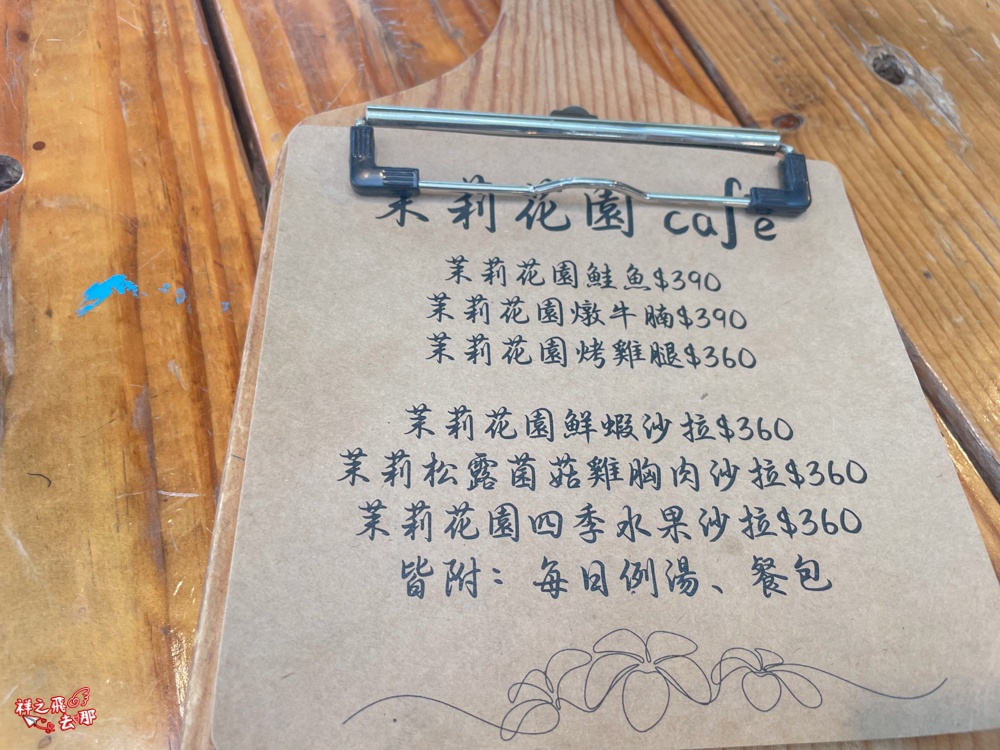 茉莉花園 cafe
茉莉花園鮭魚$390
茉莉花園燉牛腩$390
茉莉花園烤雞腿$360
茉莉花園鮮蝦沙拉$360
茉莉松露菌菇雞胸肉沙拉$360
茉莉花園四季水果沙拉$360
皆附：每日例湯、餐包
祥之飛
去那